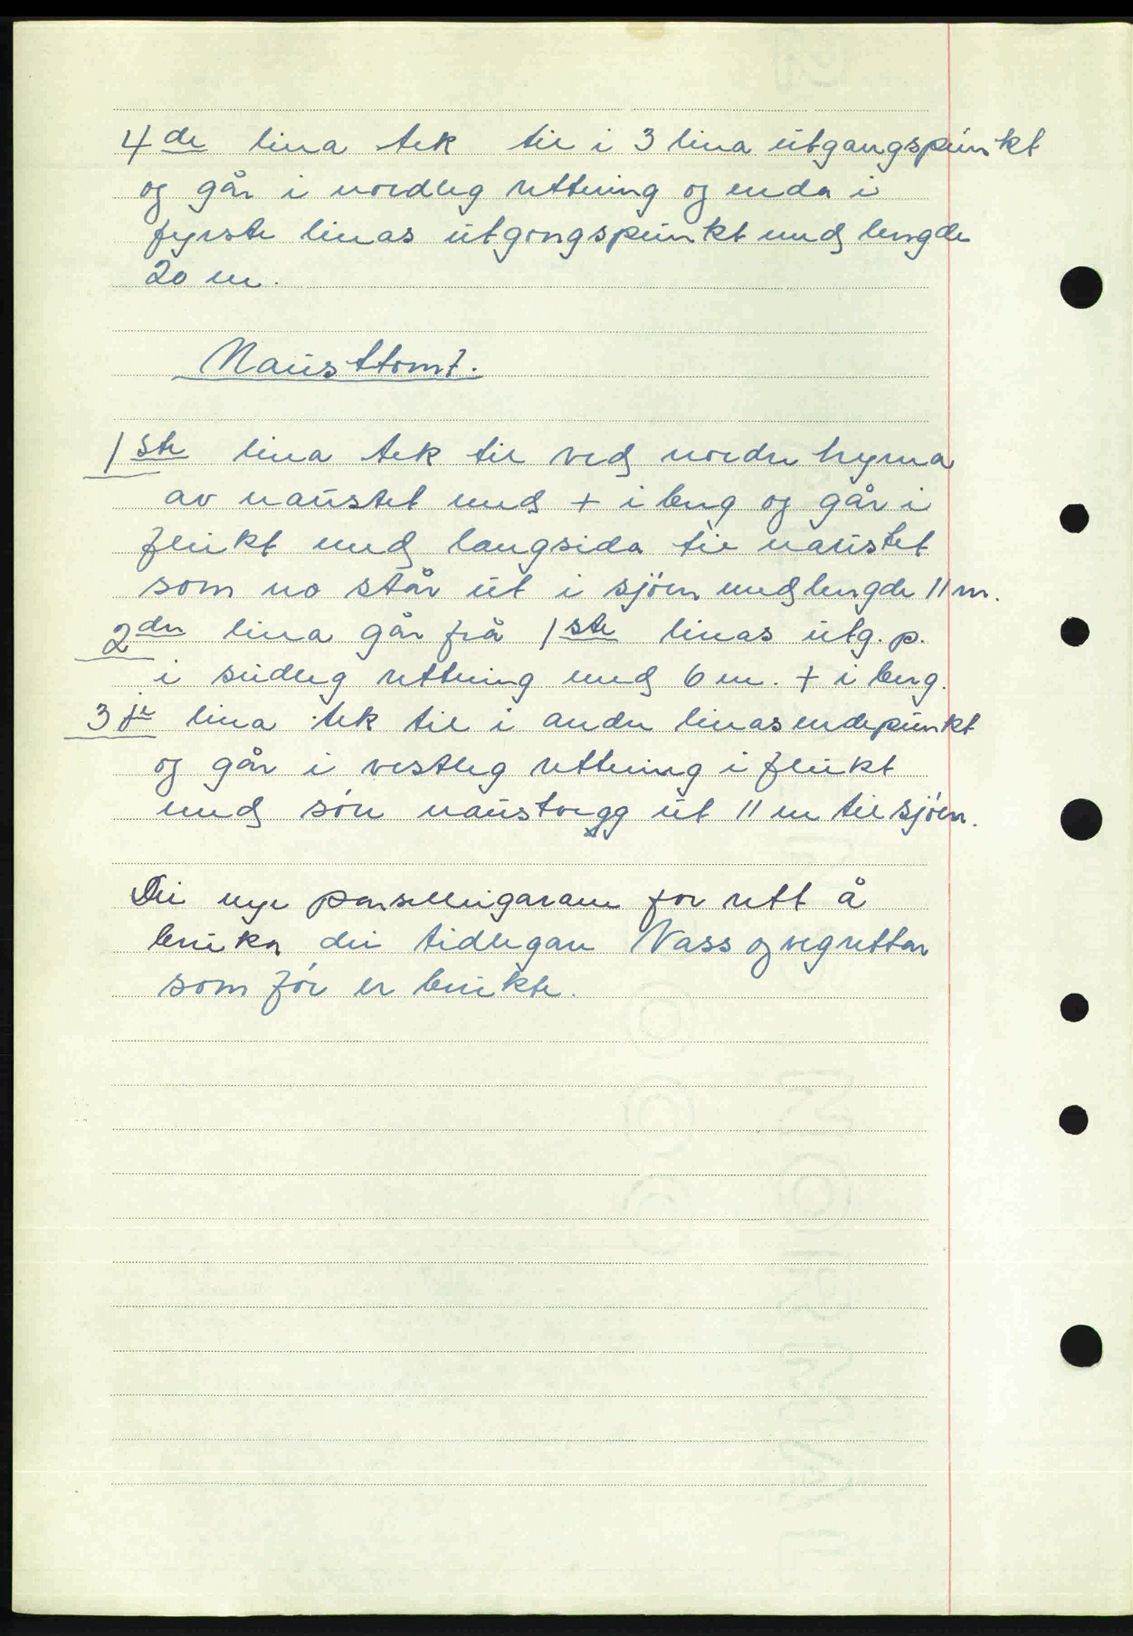 4de lina tek til i 3 lina utgangspunkt
og går i nordleg rettning og enda i
fyrste linas utgongspunkt med lengde
20 m.
Nausttomt.
1ste lina tek til ved nordre hyrna
av naustet med + i berg og går i
flukt med langsida til naustet
som no står ut i sjöen med lengde 11 m.
2dre lina går frå 1ste linas utg. p.
i sudleg rettning med 6 m. + i berg.
3je lina tek til i andre linas endepunkt
og går i vestleg rettning i flukt
med sön naustvegg ut 11 m til sjöen.
Dei nye parsellingarane for rett å
bruka dei tidlegare Vass og vegrettar
som för er brukte.